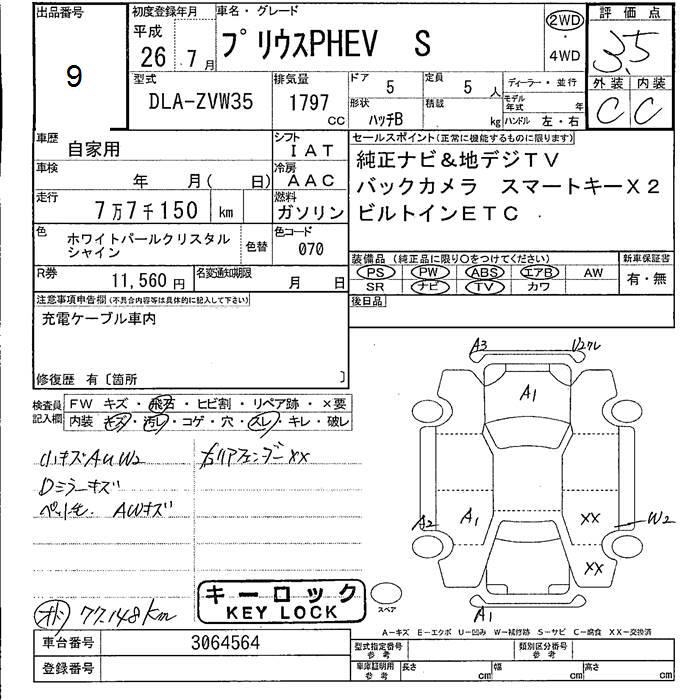 出品番号
9
初度登録年月
平成
26年7月
車名・グレード
プリウスPHEV S
2WD
4WD
評価点
3.5
型式
DLA-ZVW35
排気量
1797
CC
ドア
5
定員
5
人
形状
ハッチB
積載
kg
ディーラー・並行
モデル年式
年
ハンドル 左・右
外装 内装
C C
車歴
自家用
シフト
IAT
車検
年 月( 日)
冷房
AAC
走行
7万7千150 km
燃料
ガソリン
色
ホワイトパールクリスタル
シャイン
色替
色コード
070
R券
11,560 円
名変通知期限
月 日
セールスポイント(正常に機能するものに限ります)
純正ナビ&地デジTV
バックカメラ スマートキーX2
ビルトインETC
装備品 (純正品に限り〇をつけてください)
新車保証書
PS PW ABS エアB AW
有・無
SR ナビ TV カワ
後日品
注意事項申告欄(不具合内容等は具体的に記入して下さい)
充電ケーブル車内
修復歴 有〔箇所 〕
検査員記入欄
FW キズ・飛石・ヒビ割・リペア跡・×要
内装 キズ・汚レ・コゲ・穴・スレ・キレ・破レ
小キズAUW2
右リアフェンダーXX
Dミラーキズ
AWキズ
A3
U2ワレ
A1
A2
A1
XX
W2
XX
A1
キーロック
KEY LOCK
スペア
77.148Km
A-キズ E-エクボ U-凹み W-補修跡 S-サビ C-腐食 XX-交換済
車台番号
3064564
登録番号
型式指定番号
参考
類別区分番号
参考
車庫証明用
参考
長さ
cm
幅
cm
高さ
cm